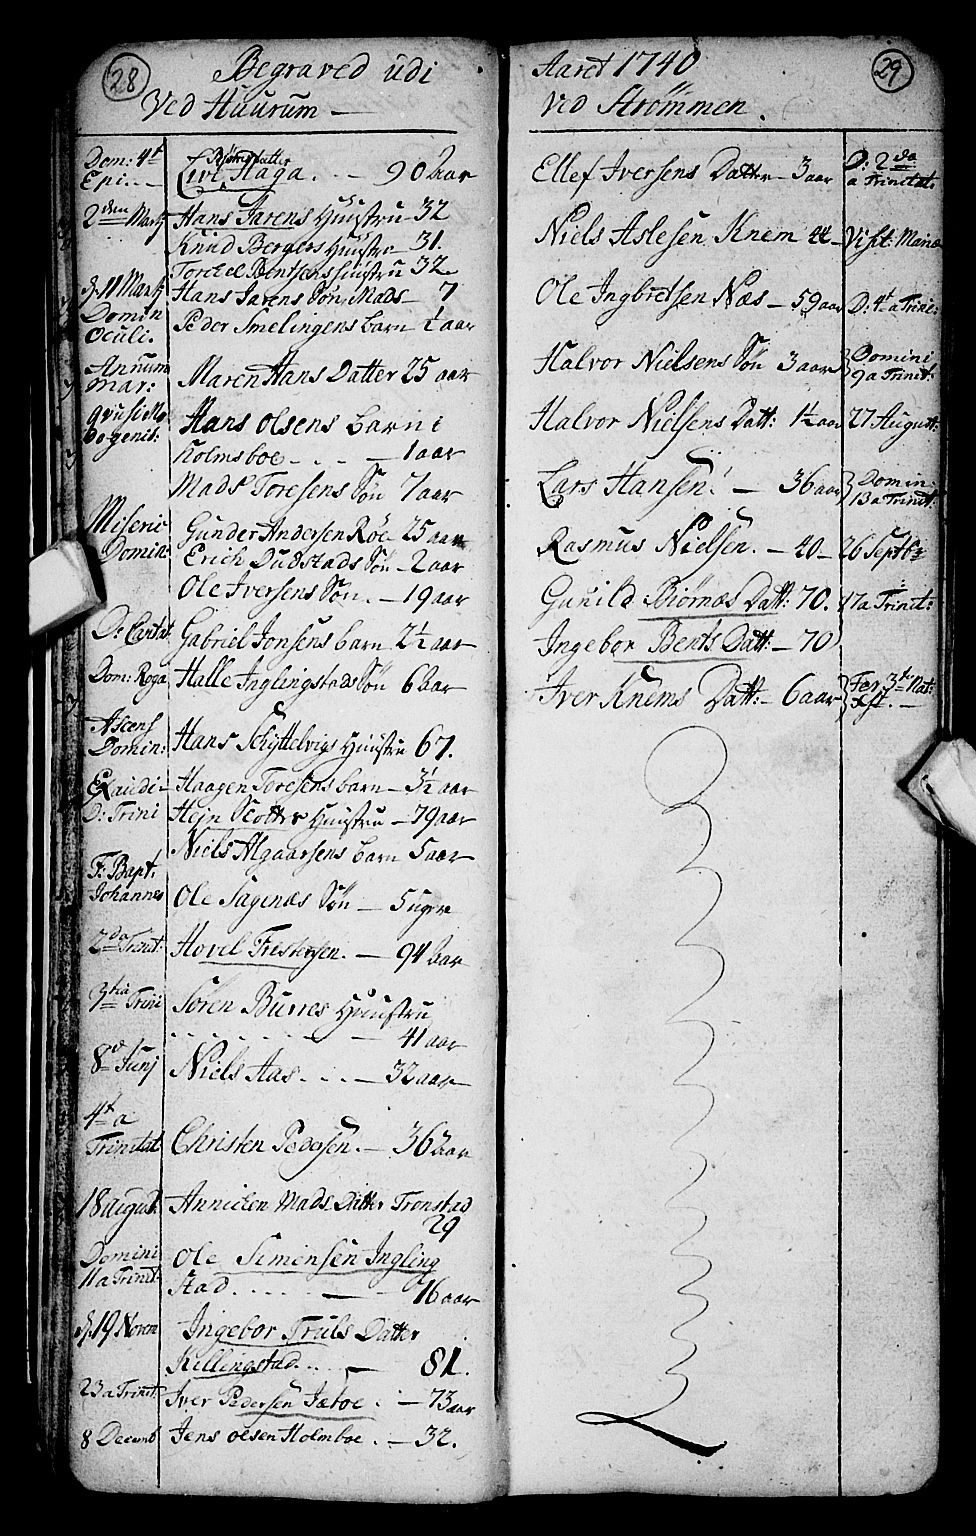 28
Begraved udi
Ved Huurum —
Dom: 4t
Epi. . - Live Haga. . - 90 aar
2den Martj Hans Jarens Hüüstru 32
Knud Bergers Hüüstru 31.
Torckel Bentsens Hüüstru 32
d. 11 Martj Hans Jarens Søn Mads — 7
Domin
Oculi. Peder Smelingens barn ½ aar
Annum
Mar: Maren Hans Datter 25 aar
Hans Olsens barn i
Holmsboe - - - 1 aar
Mads Toresens Søn 7 aar
Miseric
Domin: Gunder Andersen Røe 25 aar
Erich Dudstads Søn - 2 aar
Ole Iversens Søn. - 19 aar
D: Cantat Gabriel Jonsens barn 2½ aar
Dom: Roga Halle Inglingstads Søn 6 aar
Ascens
Domin: Hans Schyttelvigs Hüüstru 67.
Exaudi - Haagen Toresens barn - 3½ aar
D: Trini Hejn Scotter Hüüstru - 79 aar
Niels Algaarsens barn 5 aar
F: Bapt:
Johannes Ole Sagenæs Søn — 5 uger
2da Trinit: Hovel Frestensen. — 94 aar
3tia Trini Søren Burres Hüüstru
— 41 aar
8d Junj Niels Aas . . . — 32 aar
4ta
Trinitat Christen Pedersen. — 36 aar
18 August: Annichen Mads Datter Tronstad
29
Domini
11 a Trinit: Ole Simensen Ingling
stad . . . . — 16 aar
d. 19 Novem Ingebor Truls Datter
Killingstad. . . — 81.
23 a Trinit: Iver Pedersen Jætoe : — 73 aar
8 Decemb Jens Olsen Holmboe . — 32.
29
Aaret 1740
Ved Strømmen.
Ellef Iversens Datter - 3 aar D: 2da
a Trinitat:
Niels Aslesen Knem 44 - Visit: Mariæ
Ole Ingbretsen Næs - 59 aar D: 4ta Trini:
Halvor Nielsens Søn 3 aar Domini
9 a Trinit:
Halvor Nielsens Datt: 1½ aar 27 August:
Lars Hansen: — 36 aar Domin:
13 a Trinit:
Rasmus Nielsen. - 40 - 26 Septbr
Gunild Biørnæs Datt: 70. 17 a Trinit:
Ingebor Bents Datt: - 70
Iver Knems Datt: - 6 aar Fer 3t Nat:
Xst. —